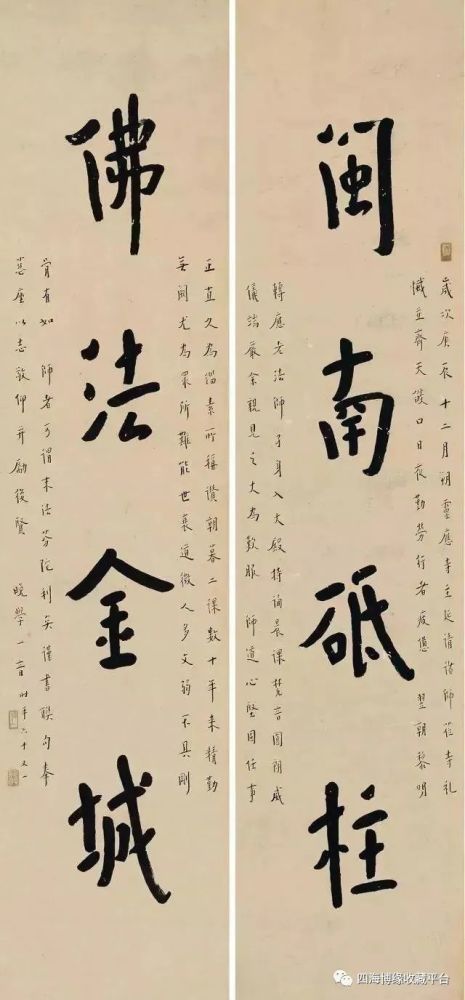 閩南砥柱
歲次庚辰十二月朔靈應寺主延請諸師莅寺禮
懺並齋天燄口日夜勤勞行者疲憊 翌朝黎明
轉應老法師孑身入大殿持誦晨課梵音圓朗威
儀嚴余親見之大為歎服 師道心堅固任事
佛法金城
正直久為緇素所稱讚朝暮二課數十年來精勤
無間尤為眾所難能世衰道微人多文弱不具剛
骨有如 師者可謂末法芬陀利矣謹書聯句奉
慈座以志敬仰并勵後賢 晚學一音 時年六十又一
四海博缘收藏平台